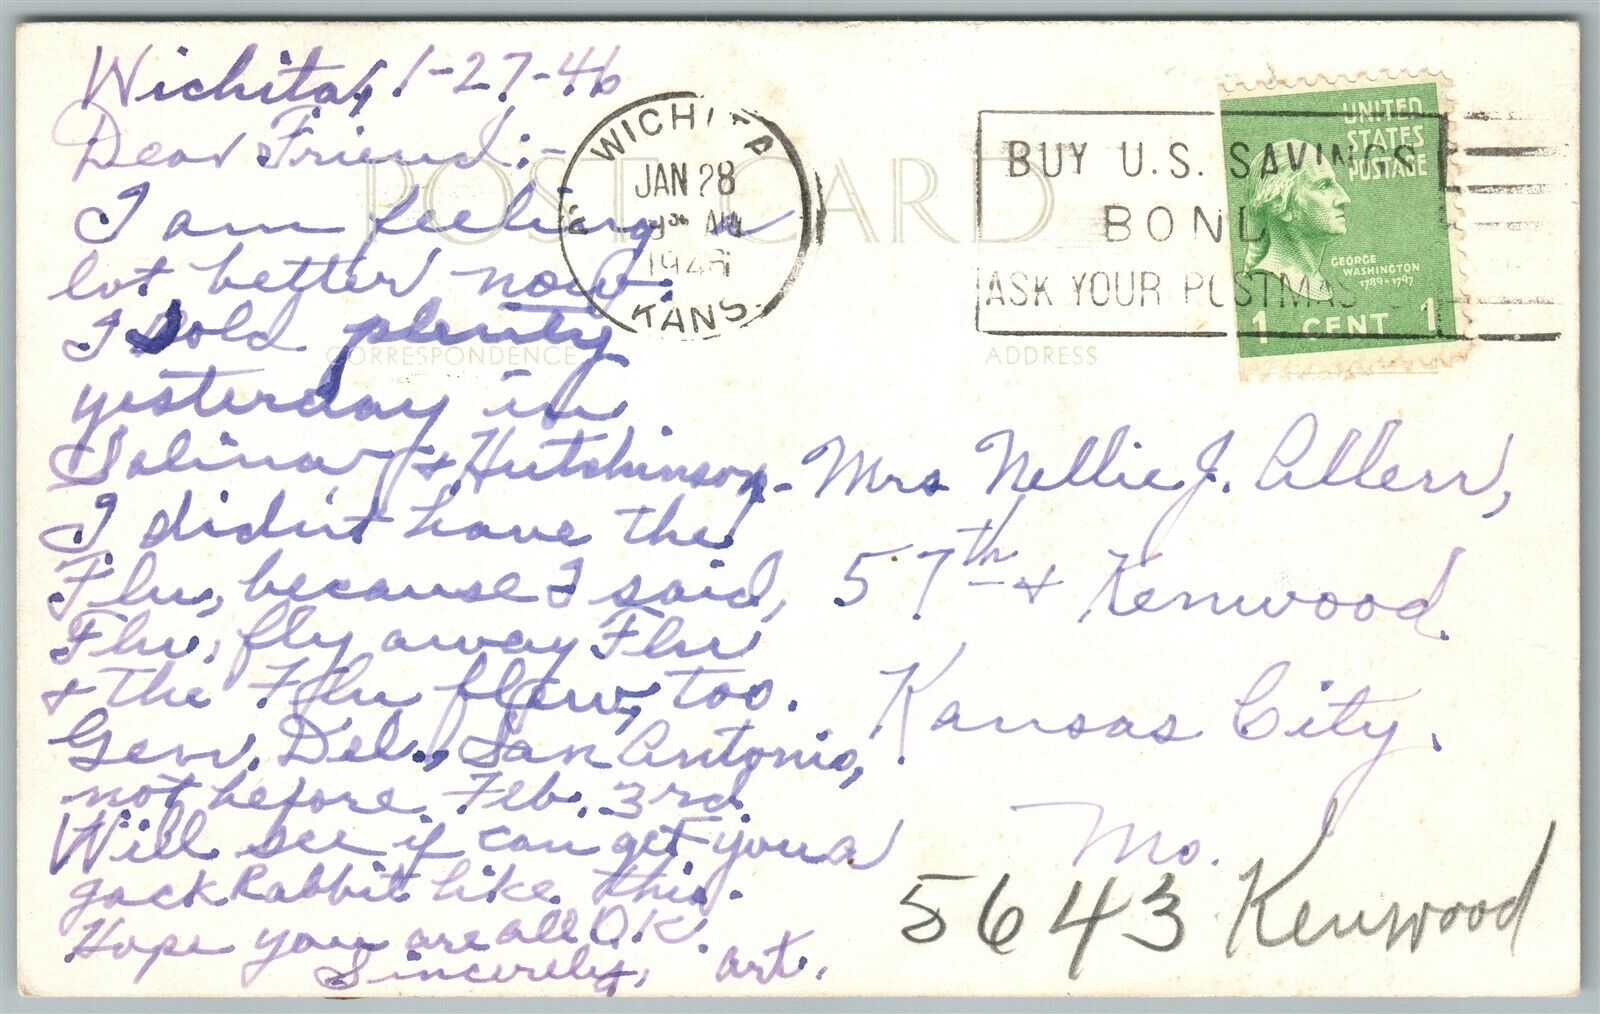 Wichita, 1-27-46
Dear Friend:-
I am feeling a
lot better now.
I sold plenty
yesterday in
Salina, & Hutchinson.
I didn't have the
Flu, because I said,
Flu, fly away Flu
& the Flu flew, too.
Gen. Del., San Antonio,
not before Feb. 3rd
Will see if can get you a
jack Rabbit like this.
Hope you are all O.K.
Sincerely, Art.
POST CARD
CORRESPONDENCE
ADDRESS
WICHITA
JAN 28
AM
1946
KANS
BUY U.S. SAVINGS
BOND
ASK YOUR POSTMAS
UNITED
STATES
POSTAGE
GEORGE
WASHINGTON
1789-1797
1 CENT 1
Mrs Nellie J. Allen,
57th & Kenwood.
Kansas City.
Mo.
5643 Kenwood